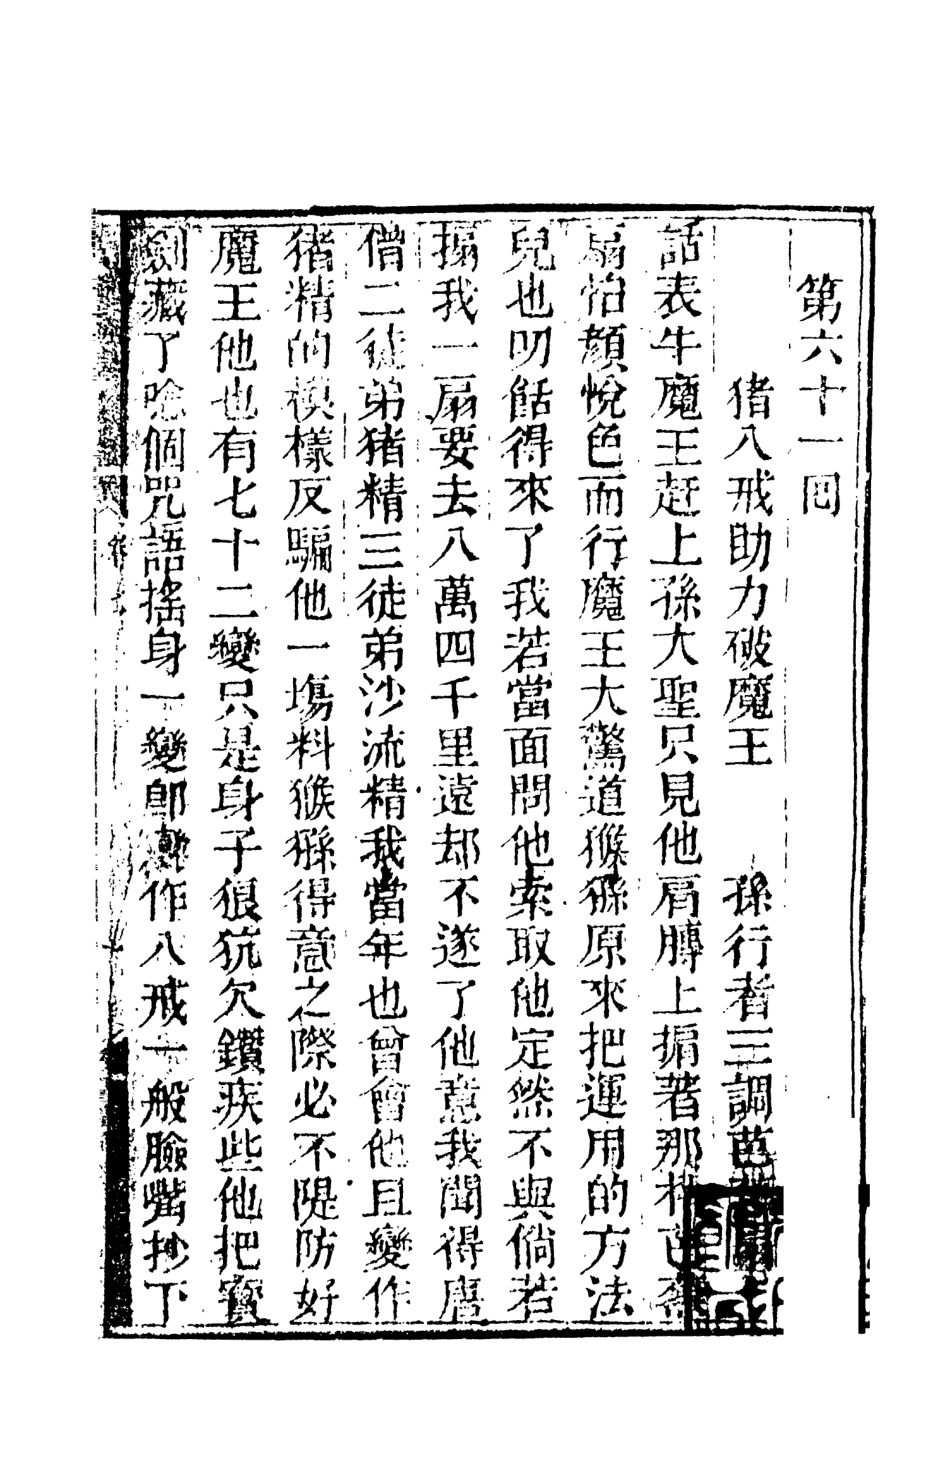 第六十一回
猪八戒助力破魔王　孫行者三調芭
話表牛魔王赶上孫大聖只見他肩膊上掮著那柄芭蕉
扇怡顏悅色而行魔王大驚道猴猻原來把運用的方法
兒也叨餂得來了我若當面問他索取他定然不與倘若
搧我一扇要去八萬四千里遠却不遂了他意我聞得唐
僧二徒弟猪精三徒弟沙流精我當年也曾會他且變作
猪精的模樣反騙他一場料猴猻得意之際必不隄防好
魔王他也有七十二變只是身子狼犺欠鑽疾些他把寶
劍藏了唸個咒語搖身一變即變作八戒一般臉嘴抄下